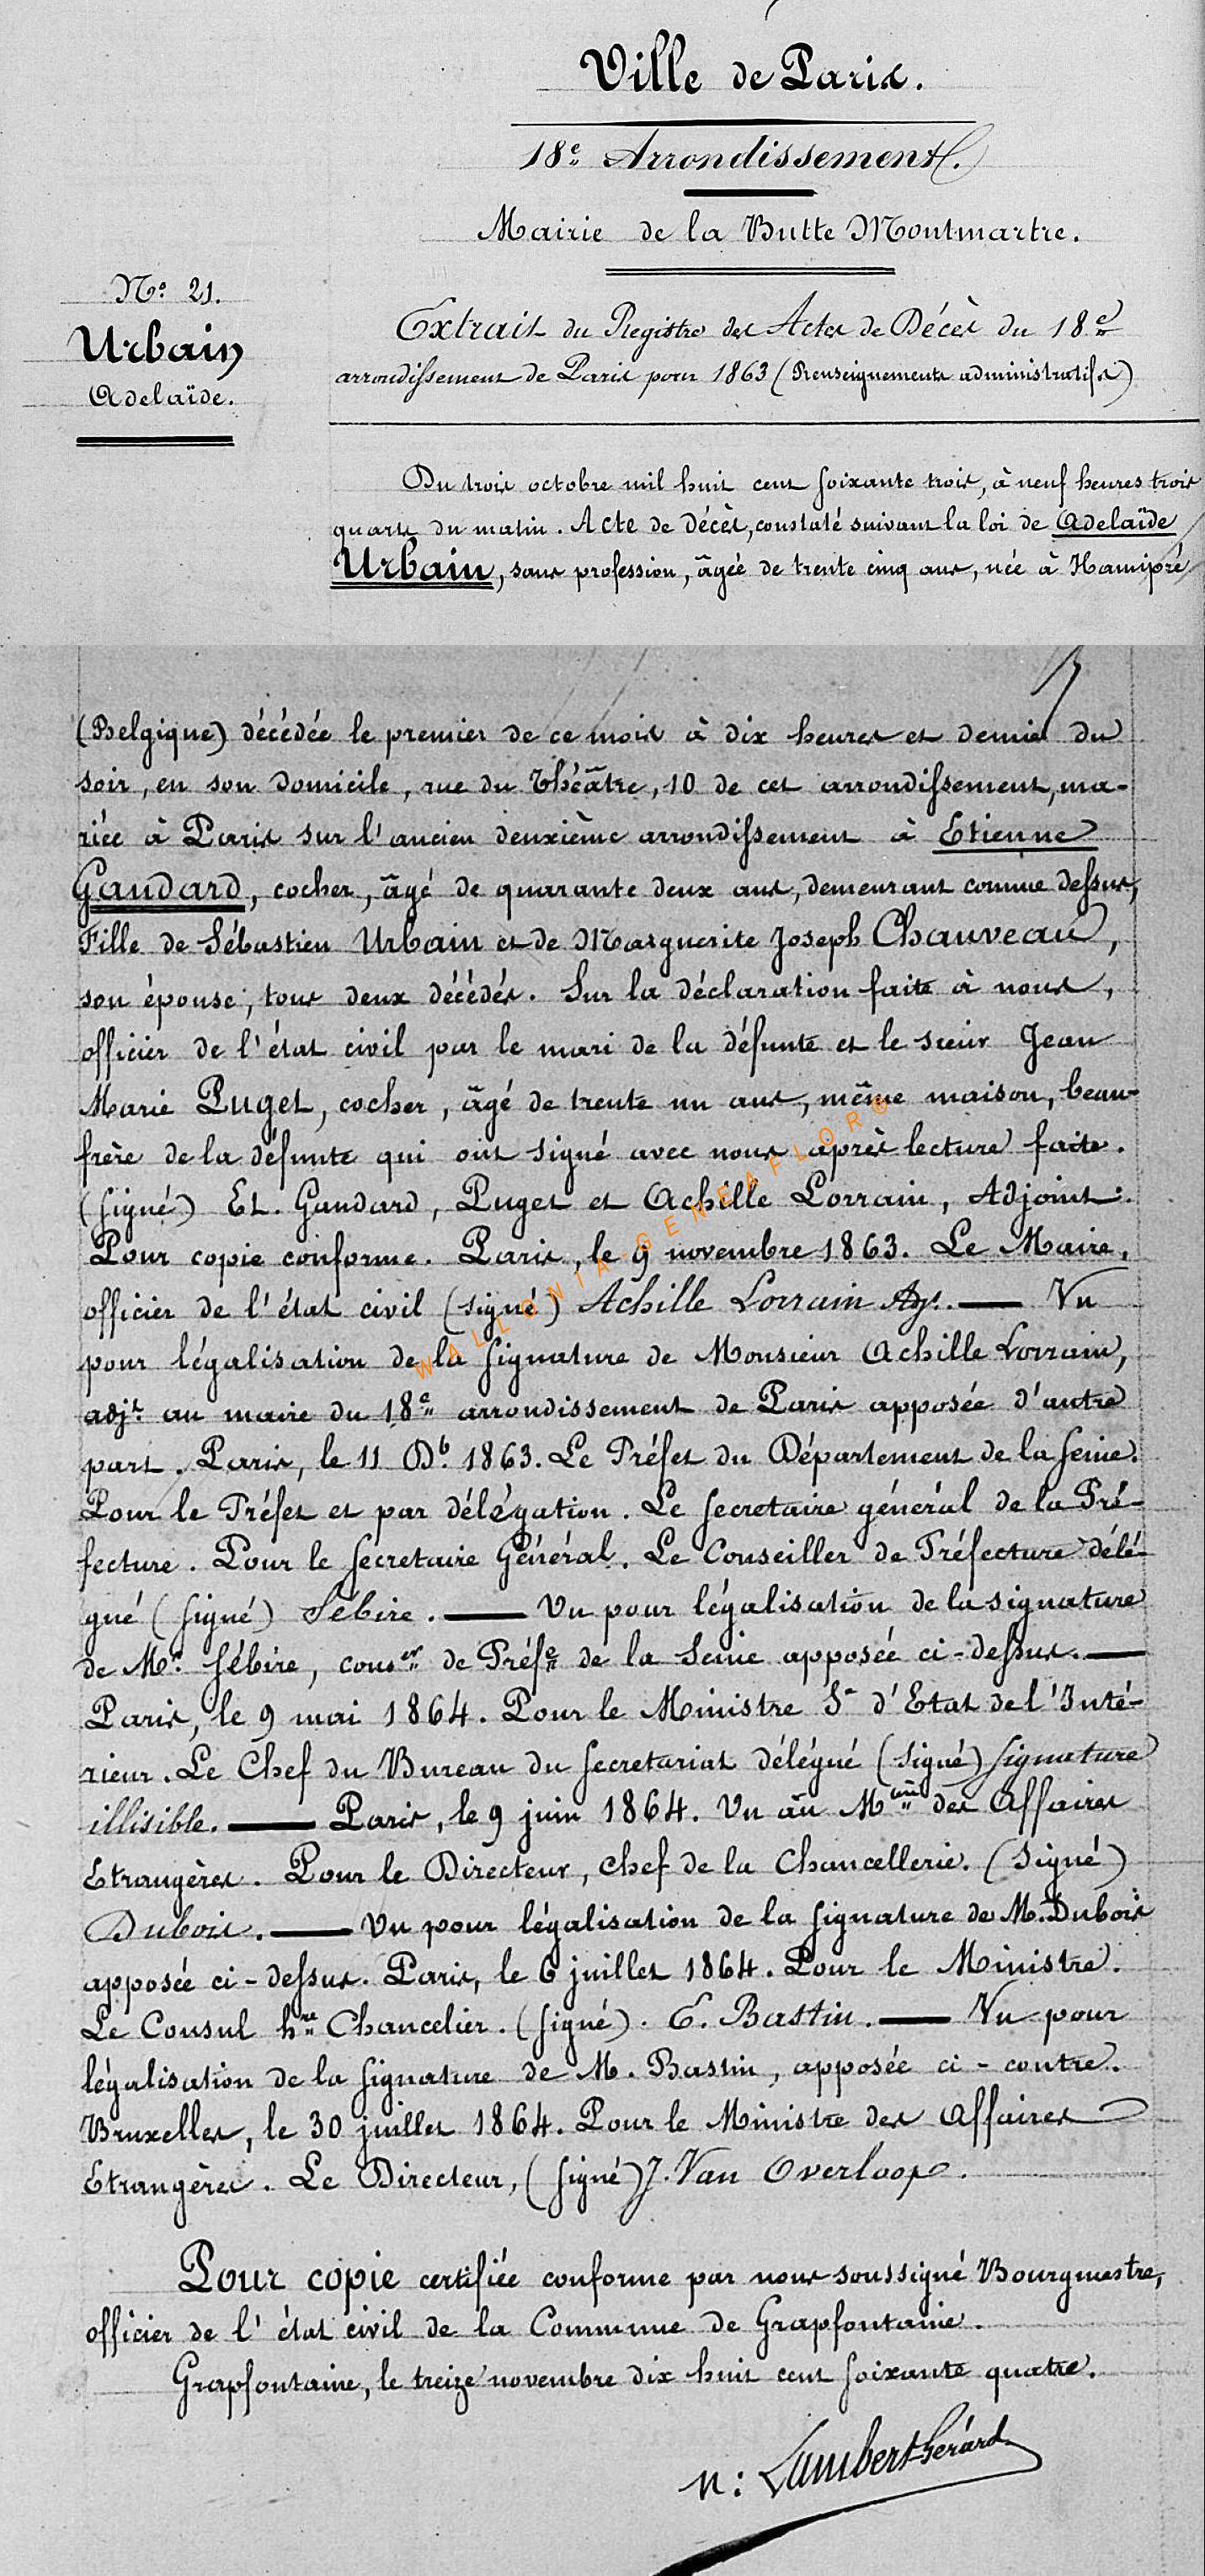 Ville de Paris.
18e Arrondissement.
Mairie de la Butte Montmartre.
No 21.
Urbain
Adelaïde.
Extrait du Registre des Actes de Décès du 18e
arrondissement de Paris pour 1863 (Renseignements administratifs)
Du trois octobre mil huit cent soixante trois, à neuf heures trois
quarts du matin. Acte de décès, constaté suivant la loi de Adelaïde
Urbain, sans profession, âgée de trente cinq ans, née à Hamipré
(Belgique) décédée le premier de ce mois à dix heures et demie du
soir, en son domicile, rue du Théâtre, 10 de cet arrondissement, ma-
riée à Paris sur l'ancien deuxième arrondissement à Etienne
Gaudard, cocher, âgé de quarante deux ans, demeurant comme dessus,
Fille de Sébastien Urbain et de Marguerite Joseph Chauveau,
son épouse, tous deux décédés. Sur la déclaration faite à nous,
officier de l'état civil par le mari de la défunte et le sieur Jean
Marie Puget, cocher, âgé de trente un ans, même maison, beau-
frère de la défunte qui ont signé avec nous après lecture faite.
(signé) Et. Gaudard, Puget et Achille Lorrain, Adjoint.
Pour copie conforme. Paris, le 9 novembre 1863. Le Maire,
officier de l'état civil (signé) Achille Lorrain Ajt. — Vu
pour légalisation de la signature de Monsieur Achille Lorrain,
adjt. au maire du 18e arrondissement de Paris apposée d'autre
part. Paris, le 11 Db. 1863. Le Préfet du Département de la Seine.
Pour le Préfet et par délégation. Le secretaire général de la Pré-
fecture. Pour le secretaire Général. Le Conseiller de Préfecture délé-
gué (signé) Sébire. — Vu pour légalisation de la signature
de Mr. Sébire, conser de Préfe de la Seine apposée ci-dessus. —
Paris, le 9 mai 1864. Pour le Ministre Sre d'Etat de l'Inté-
rieur. Le Chef du Bureau du secretariat délégué (signé) signature
illisible. — Paris, le 9 juin 1864. Vu au Mère des Affaires
Etrangères. Pour le Directeur, chef de la Chancellerie. (signé)
Dubois. — Vu pour légalisation de la signature de M. Dubois
apposée ci-dessus. Paris, le 6 juillet 1864. Pour le Ministre.
Le Consul hre Chancelier. (signé). E. Bastin. — Vu pour
légalisation de la signature de M. Bastin, apposée ci-contre.
Bruxelles, le 30 juillet 1864. Pour le Ministre des Affaires
Etrangères. Le Directeur, (signé) J. Van Overloop.
Pour copie certifiée conforme par nous soussigné Bourgmestre,
officier de l'état civil de la Commune de Grapfontaine.
Grapfontaine, le treize novembre dix huit cent soixante quatre.
N: Lambert Gérard
WALLONIA-GENEAFLOR®